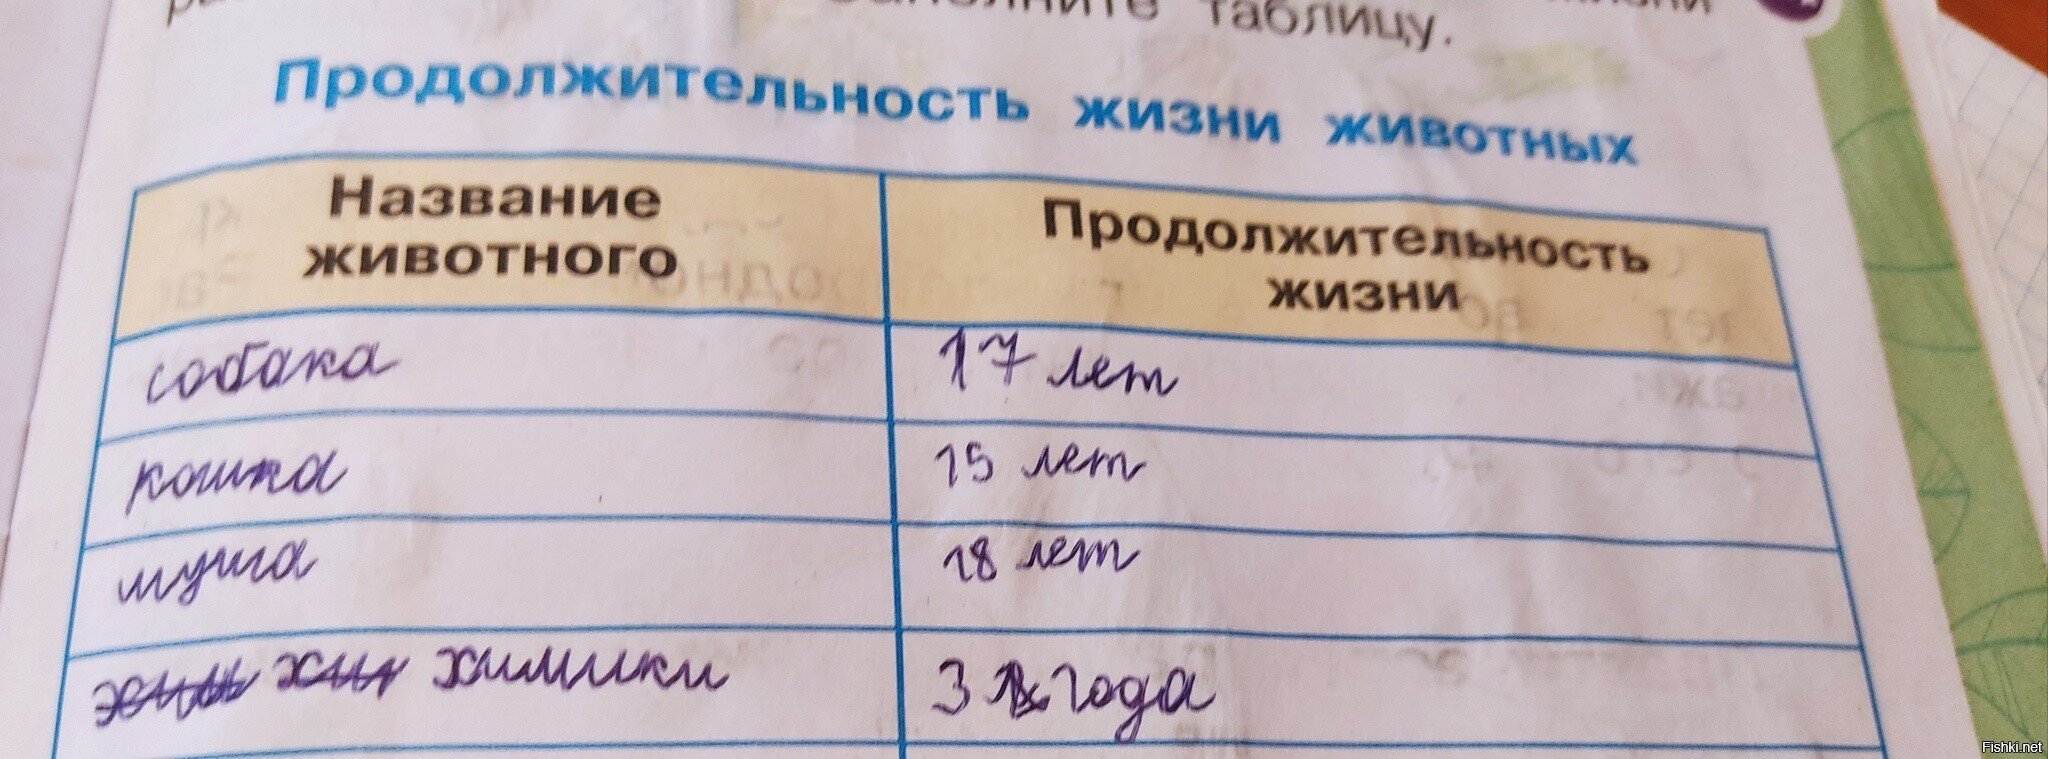 таблицу.
Продолжительность жизни животных
Название животного Продолжительность жизни
собака 17 лет
кошка 15 лет
муша 18 лет
химики 3 года
Fishki.net